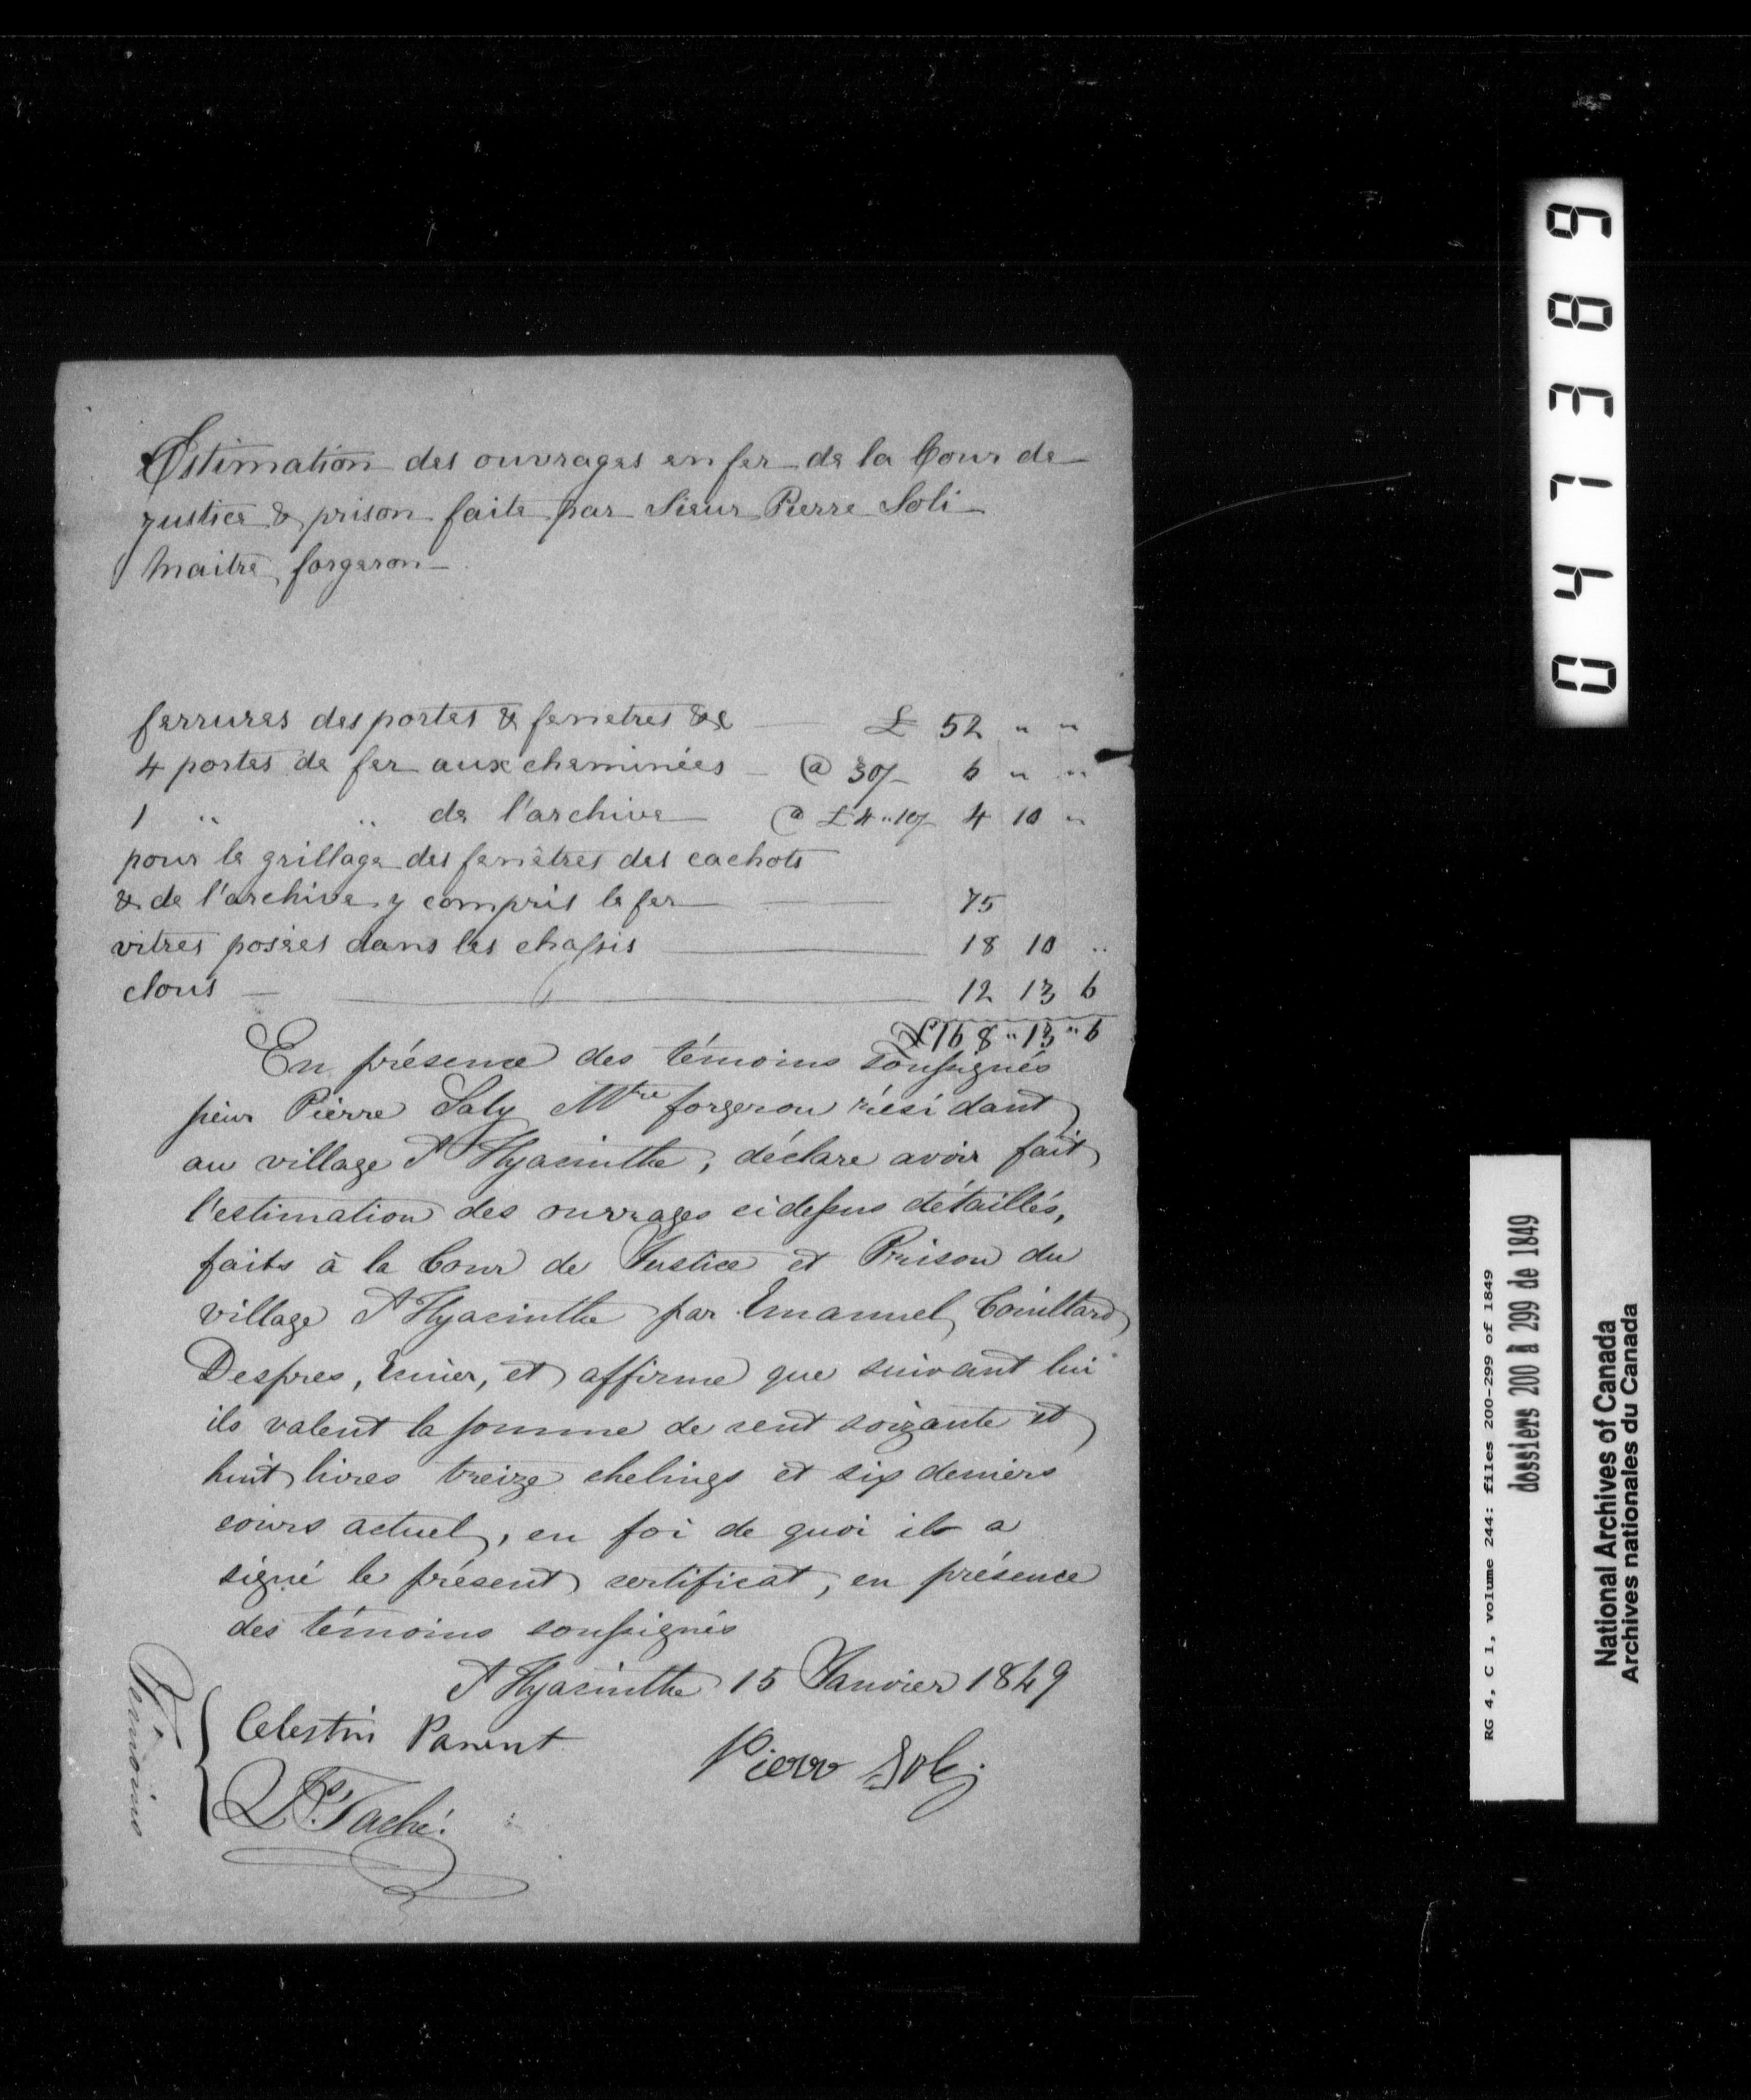 Estimation des ouvrages en fer de la Cour de
justice & prison faite par Sieur Pierre Soli
Maitre forgeron
ferrures des portes & fenetres &c £ 52 " "
4 portes de fer aux cheminées @ 30/- 6 " "
1 " " de l'archive @ £4"10/- 4 10 "
pour le grillage des fenêtres des cachots
& de l'archive y compris le fer 75
vitres posées dans les chassis 18 10 "
clous 12 13 6
£168"13"6
En présence des témoins soussignés
sieur Pierre Soly Mtre forgeron résidant
au village St Hyacinthe, déclare avoir fait
l'estimation des ouvrages cidessus détaillés,
faits à la Cour de Justice et Prison du
village St Hyacinthe par Emanuel Couillard
Despres, Ecuier, et affirme que suivant lui
ils valent la somme de cent soixante et
huit livres treize chelings et six deniers
cours actuel, en foi de quoi il a
signé le présent certificat, en présence
des témoins soussignés
St Hyacinthe 15 Janvier 1849
Témoins
Celestin Parent
Pierre Soly
Taché
047389
RG 4, C 1, volume 244: files 200-299 of 1849
dossiers 200 à 299 de 1849
National Archives of Canada
Archives nationales du Canada